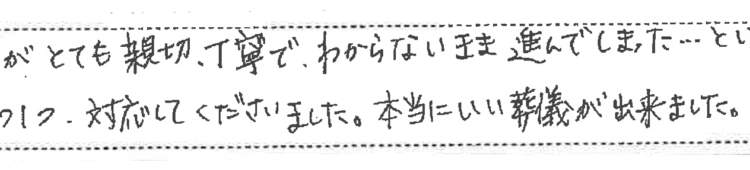 がとても親切、丁寧で、わからないまま進んでしまった…とい
対応してくださいました。本当にいい葬儀が出来ました。